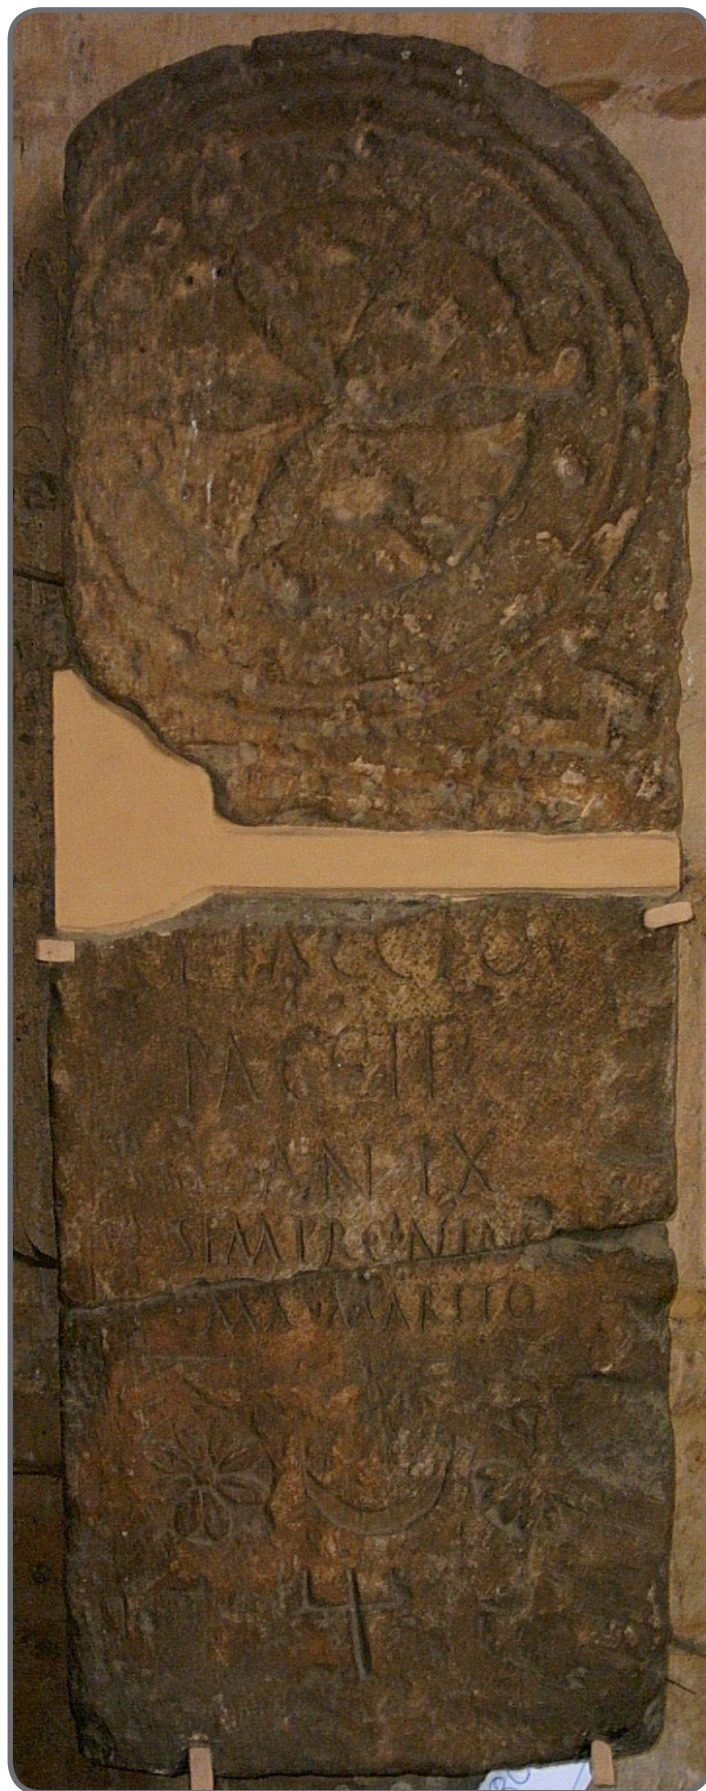 L PACCIO
PACCII F
AN LX
SEMPRONIA
MARITO